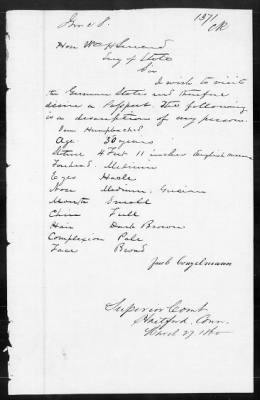 1371
Hon Wm H Seward
Secy of State
Sir
I wish to visit
the German States and therefore
desire a Passport. The following
is a description of my person.
I am Humpbacked
Age 30 years
Stature 4 Feet 11 inches English measure
Forehead Medium
Eyes Hazle
Nose Medium
Mouth Small
Chin Full
Hair Dark Brown
Complexion Pale
Face Broad
Jacob Conzelmann
Superior Court
Hartford, Conn.
March 27